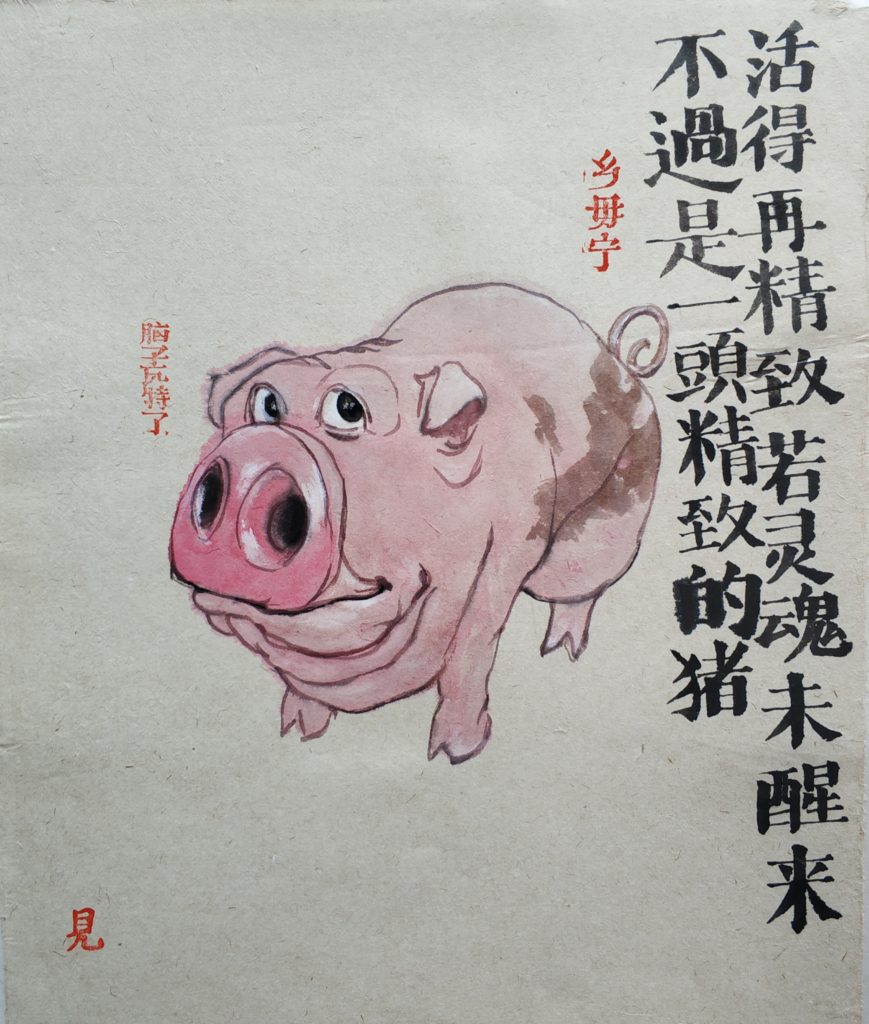 活得再精致若灵魂未醒来
不過是一頭精致的猪
乡毋宁
脑子瓦特了
見